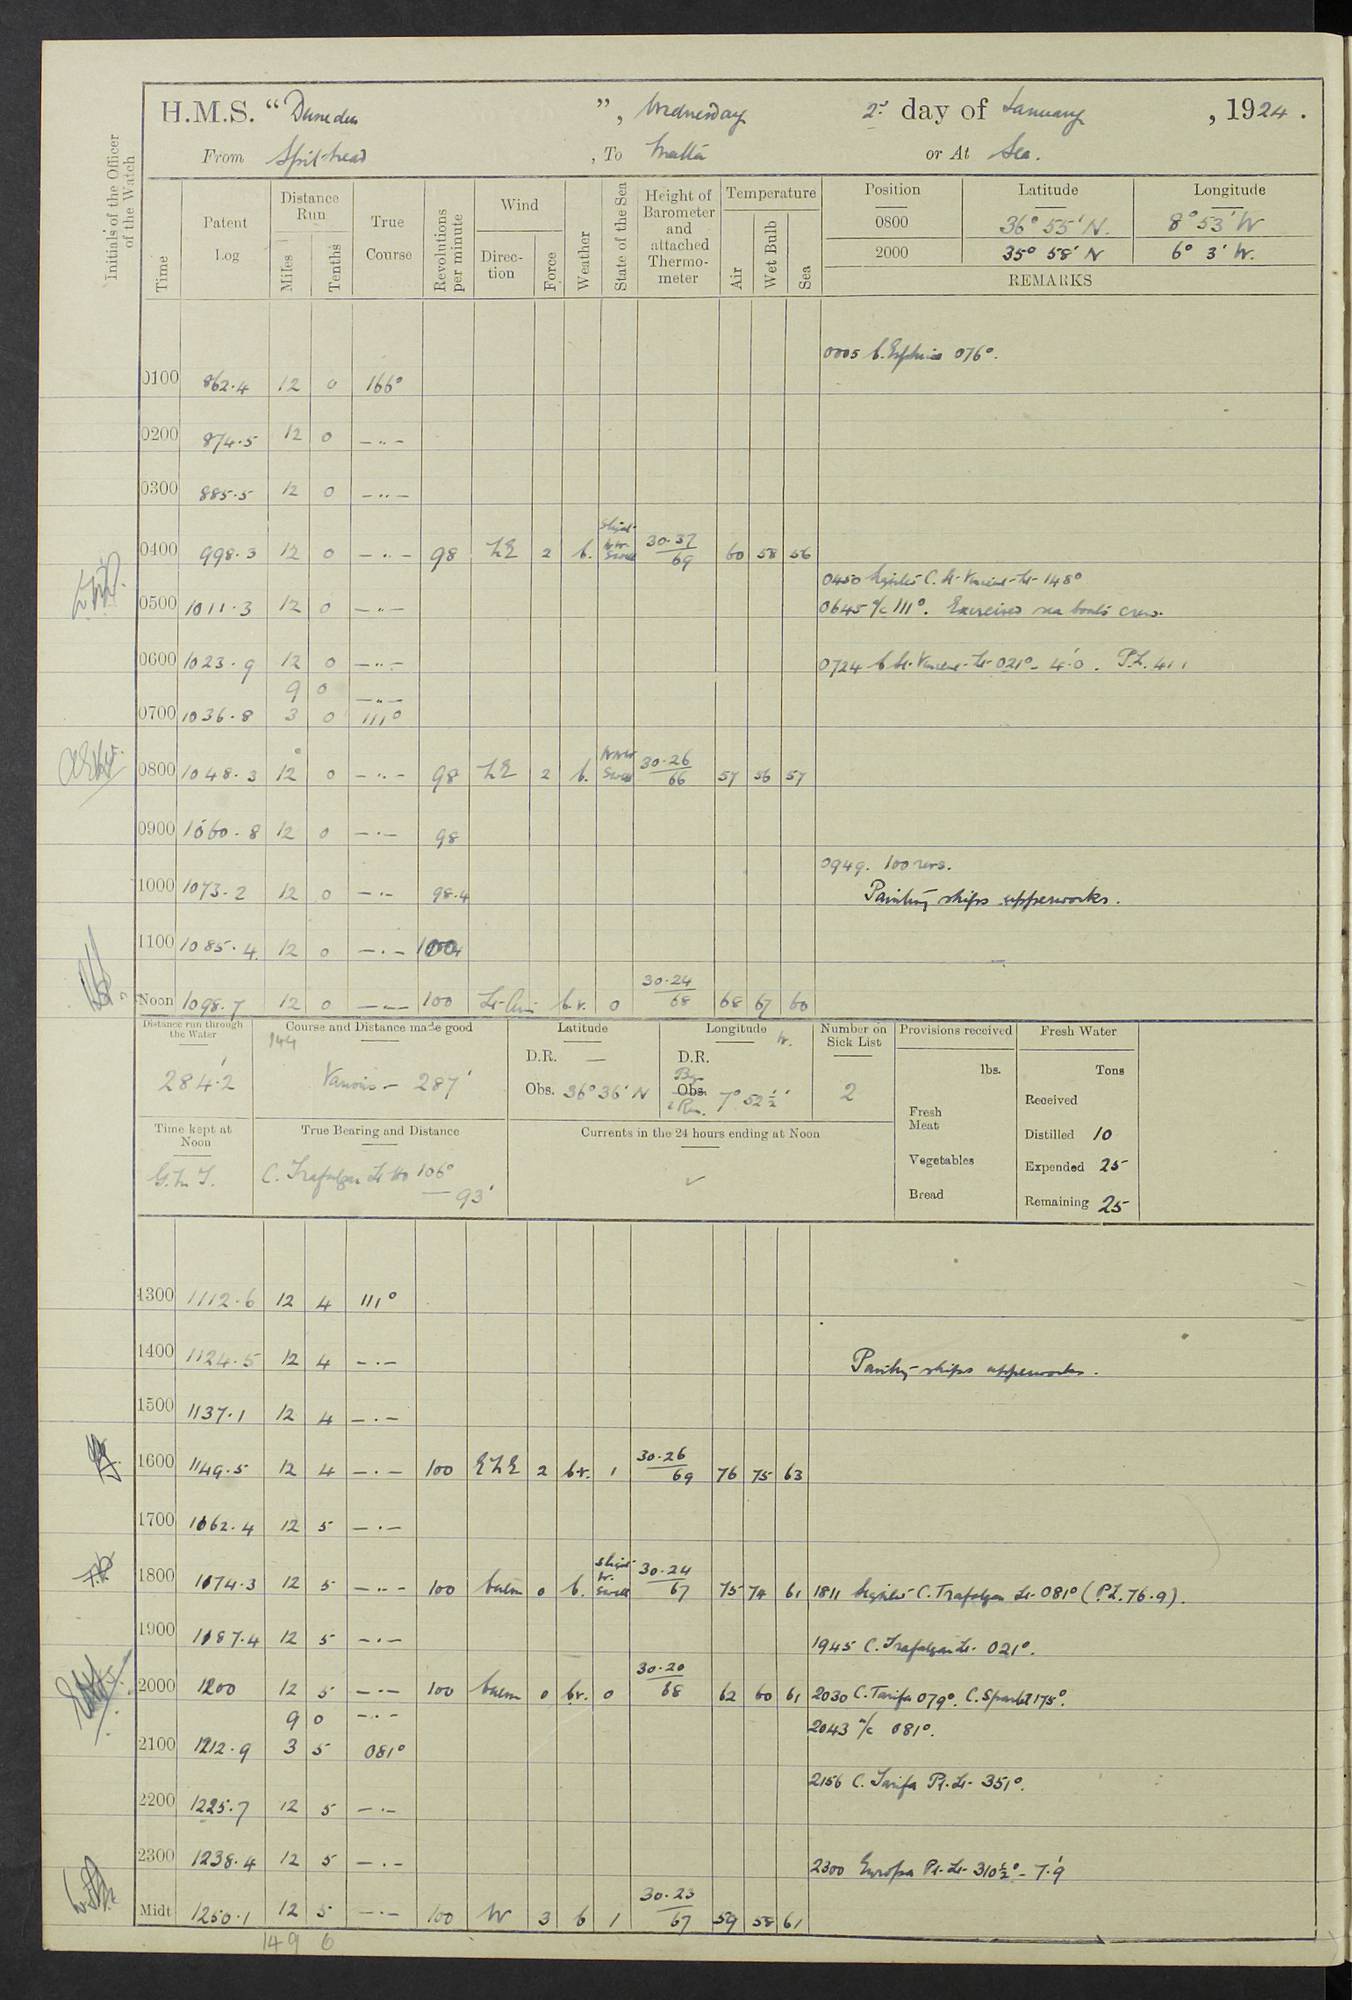 H.M.S. “Dunedin”, Wednesday 2nd day of January, 1924.
From Spithead, To Malta or At Sea.
Initials of the Officer of the Watch
Time
Patent Log
Distance Run
Miles
Tenths
True Course
Revolutions per minute
Wind
Direc-tion
Force
Weather
State of the Sea
Height of Barometer and attached Thermo-meter
Temperature
Air
Wet Bulb
Sea
Position Latitude Longitude
0800 36° 55' N. 8° 53' W
2000 35° 58' N 6° 3' W.
REMARKS
0005 C. Espichel 076°.
0100 862.4 12 0 166°
0200 874.5 12 0 — ·· —
0300 885.5 12 0 — ·· —
0400 998.3 12 0 — ·· — 98 2 b. Slight Swell 30.37/69 60 58 56
0450 Sighted C. St. Vincent Lt. 148°
0500 1011.3 12 0 — ·· —
0645 a/c 111°. Exercised sea boats crew.
0600 1023.9 12 0 — ·· —
0724 C St. Vincent Lt. 021° - 4'.0. P.L. 41.1
9 0 — ·· —
0700 1036.8 3 0 111°
0800 1048.3 12 0 — ·· — 98 2 b. Swell 30.26/66 57 56 57
0900 1060.8 12 0 — · — 98
0949. 100 revs.
1000 1073.2 12 0 — · — 98.4
Painting ships upperworks.
1100 1085.4 12 0 — · — 100
Noon 1098.7 12 0 — · — 100 Lt. Airs b.v. 0 30.24/68 68 67 60
Distance run through the Water
284'.2
144
Course and Distance made good
Various - 287'
Latitude
D.R. —
Obs. 36° 36' N
Longitude W.
D.R.
Obs. 7° 52 1/2'
Number on Sick List
2
Provisions received
lbs.
Fresh Meat
Vegetables
Bread
Fresh Water
Tons
Received
Distilled 10
Expended 25
Remaining 25
Time kept at Noon
G.M.T.
True Bearing and Distance
C. Trafalgar Lt Ho 106° — 93'
Currents in the 24 hours ending at Noon
1300 1112.6 12 4 111°
1400 1124.5 12 4 — · —
Painting ships upperworks.
1500 1137.1 12 4 — · —
1600 1149.5 12 4 — · — 100 2 b.v. 1 30.26/69 76 75 63
1700 1162.4 12 5 — · —
1800 1174.3 12 5 — ·· — 100 Calm 0 b. Slight Swell 30.24/67 75 74 61
1811 Sighted C. Trafalgar Lt. 081° (P.L. 76.9).
1900 1187.4 12 5 — · —
1945 C. Trafalgar Lt. 021°.
2000 1200 12 5 — · — 100 Calm 0 b.v. 0 30.20/68 62 60 61
2030 C. Tarifa 079°. C. Spartel 175°.
9 0 — · —
2043 a/c 081°.
2100 1212.9 3 5 081°
2156 C. Tarifa Pt. Lt. 351°.
2200 1225.7 12 5 — · —
2300 1238.4 12 5 — · —
2300 Europa Pt. Lt. 310 1/2° - 7'.9
Midt 1250.1 12 5 — · — 100 W 3 b 1 30.23/67 59 58 61
149 6